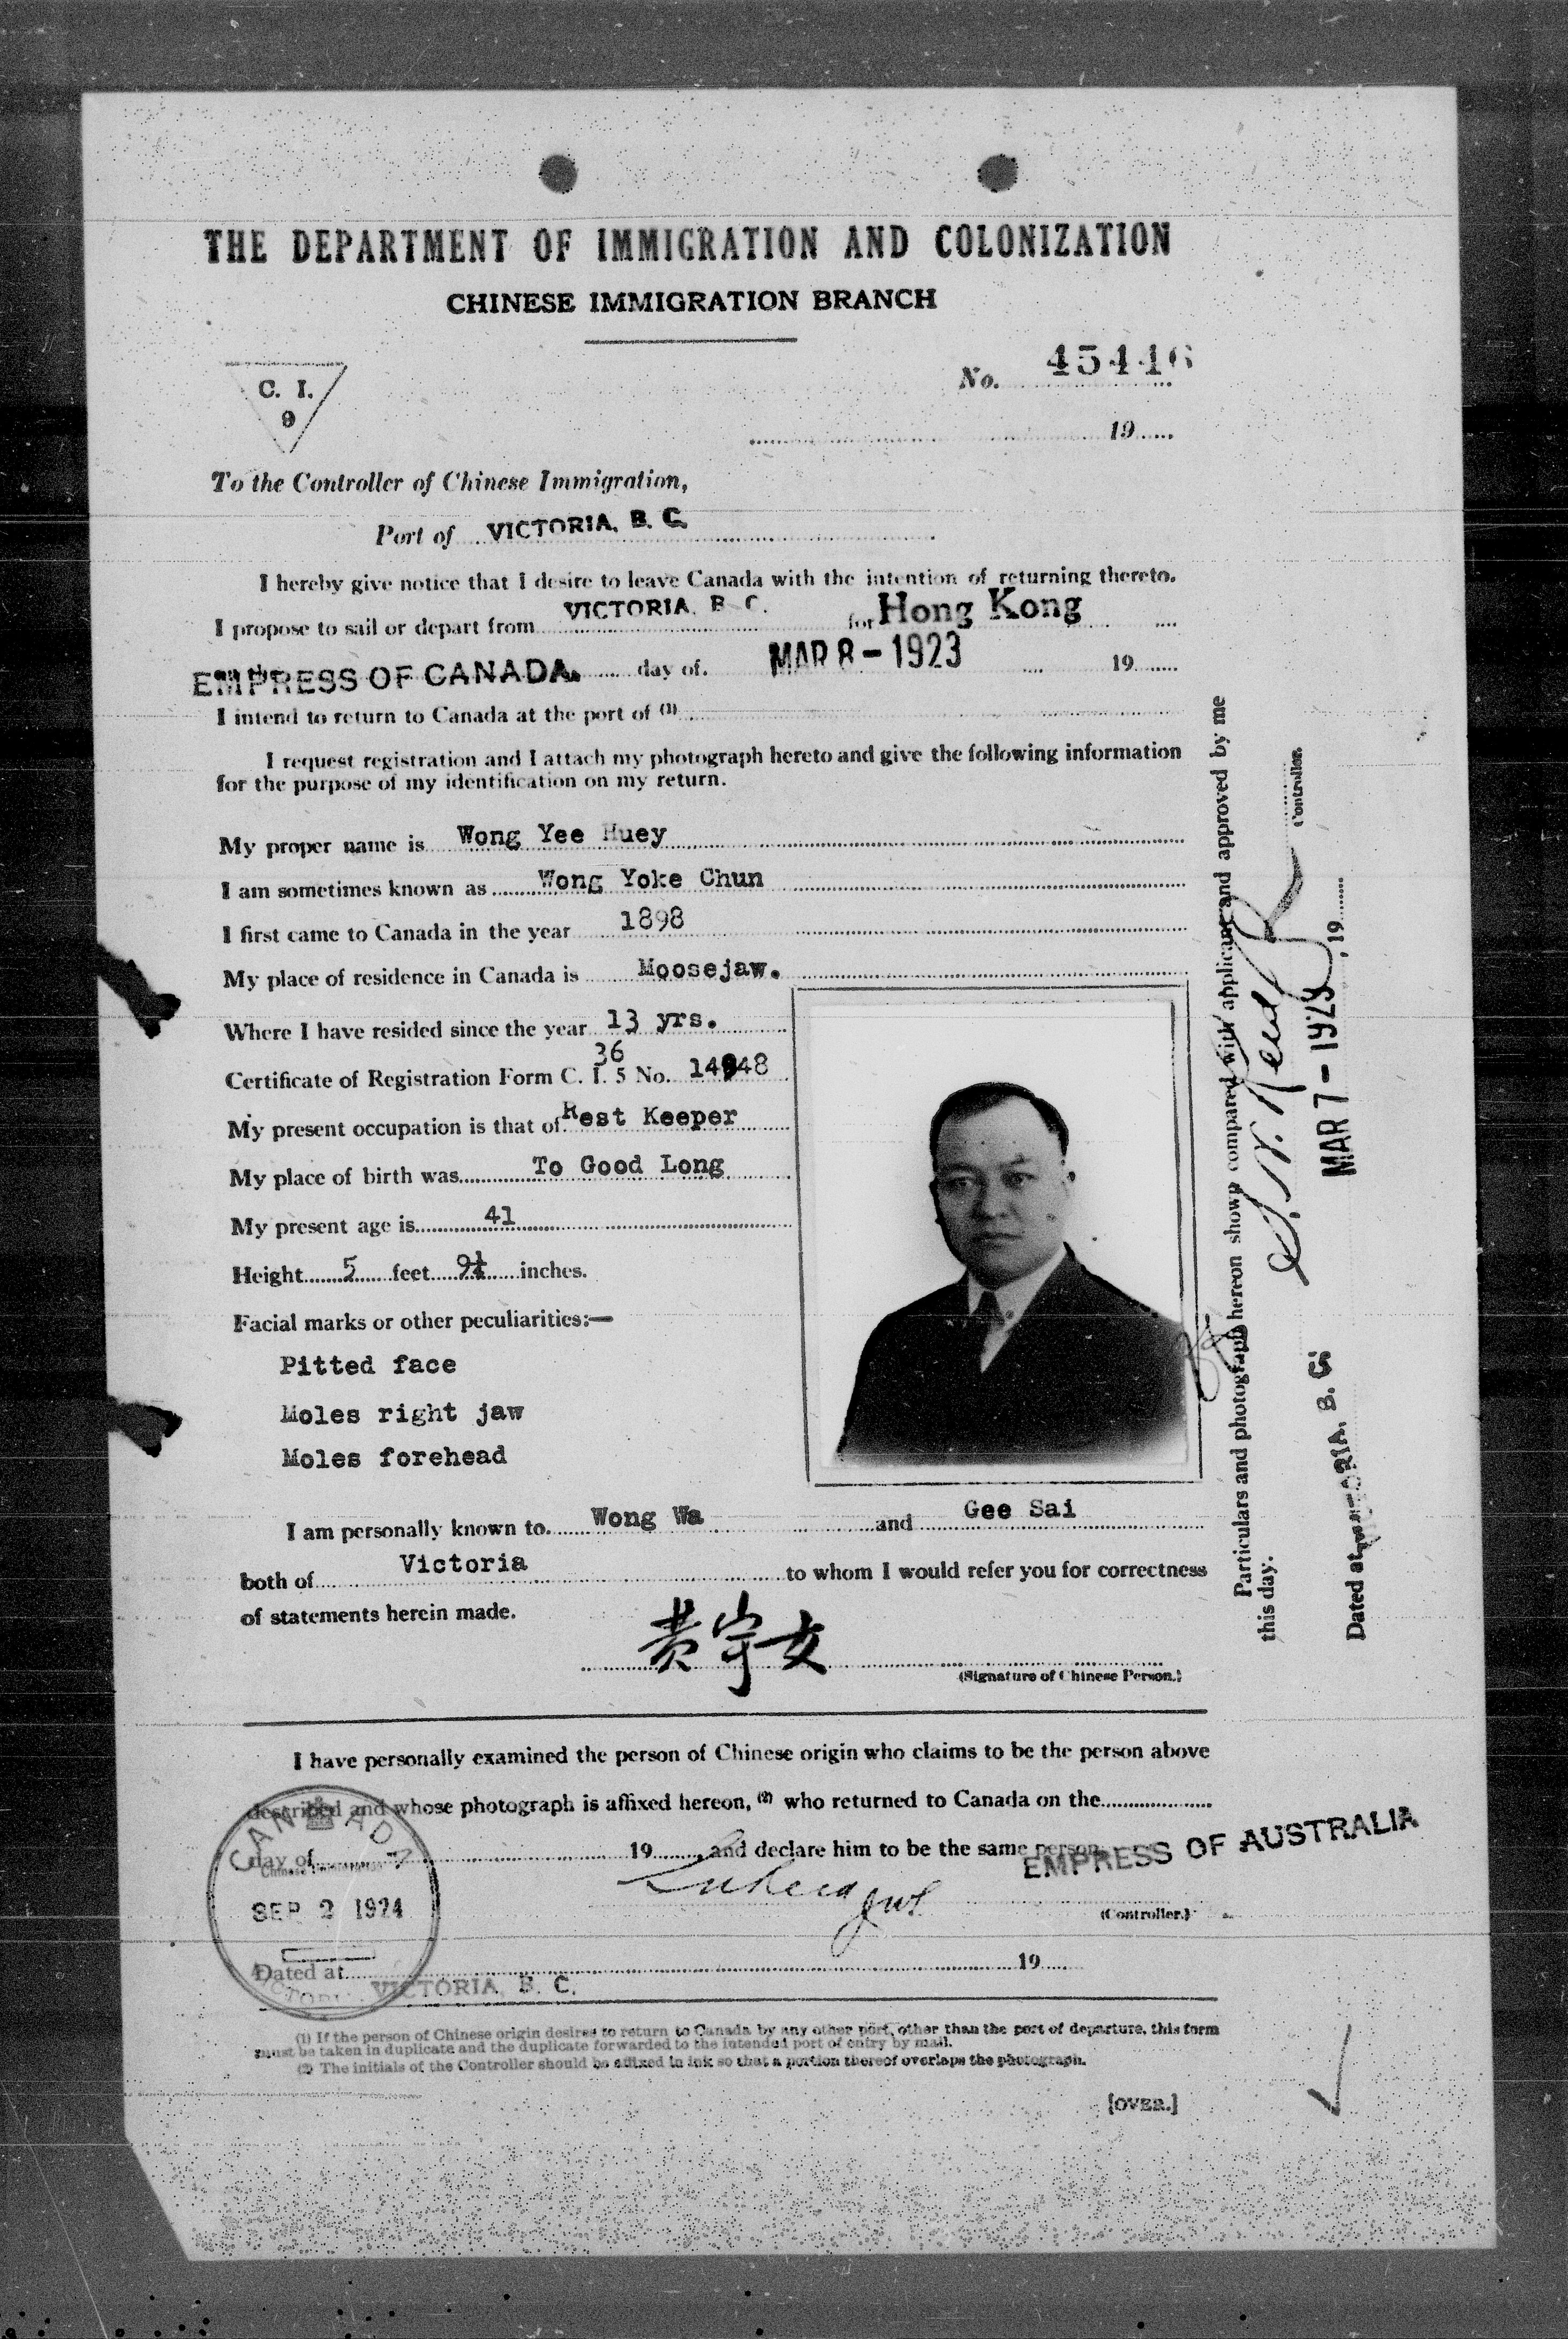 THE DEPARTMENT OF IMMIGRATION AND COLONIZATION
CHINESE IMMIGRATION BRANCH
C. I.
9
No. 45446
19
To the Controller of Chinese Immigration,
Port of VICTORIA, B. C.
I hereby give notice that I desire to leave Canada with the intention of returning thereto.
I propose to sail or depart from VICTORIA, B. C. for Hong Kong
EMPRESS OF CANADA. day of. MAR 8 - 1923 19
I intend to return to Canada at the port of (1)
I request registration and I attach my photograph hereto and give the following information
for the purpose of my identification on my return.
My proper name is Wong Yee Huey
I am sometimes known as Wong Yoke Chun
I first came to Canada in the year 1898
My place of residence in Canada is Moosejaw.
Where I have resided since the year 13 yrs.
36
Certificate of Registration Form C. I. 5 No. 14948
My present occupation is that of Rest Keeper
My place of birth was To Good Long
My present age is 41
Height 5 feet 9¼ inches.
Facial marks or other peculiarities:—
Pitted face
Moles right jaw
Moles forehead
I am personally known to Wong Wa and Gee Sai
both of Victoria to whom I would refer you for correctness
of statements herein made.
黄宇女
(Signature of Chinese Person.)
I have personally examined the person of Chinese origin who claims to be the person above
described and whose photograph is affixed hereon, (2) who returned to Canada on the
day of 19 , and declare him to be the same person.
EMPRESS OF AUSTRALIA
CANADA
SEP 2 1924
(Controller.)
Dated at VICTORIA, B. C. 19
(1) If the person of Chinese origin desires to return to Canada by any other port, other than the port of departure, this form
must be taken in duplicate and the duplicate forwarded to the intended port of entry by mail.
(2) The initials of the Controller should be affixed in ink so that a portion thereof overlaps the photograph.
[OVER.]
Particulars and photograph hereon shown compared with applicant and approved by me
this day.
Controller.
Dated at VICTORIA, B. C. MAR 7 - 1923 , 19